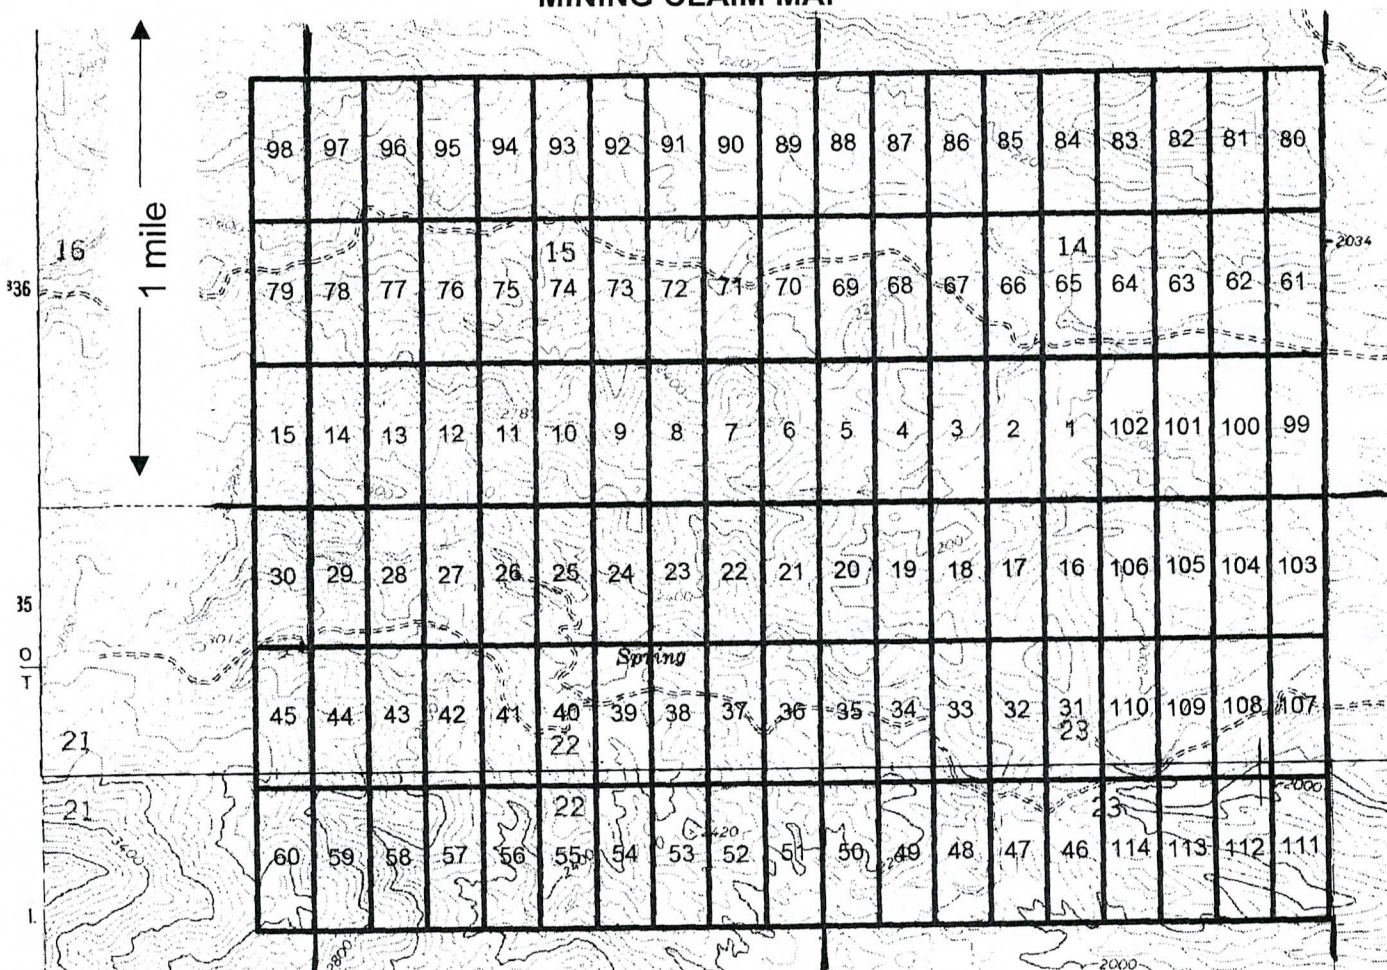 MINING CLAIM MAP
1 mile
98 97 96 95 94 93 92 91 90 89 88 87 86 85 84 83 82 81 80
16 15 14 2034
336
79 78 77 76 75 74 73 72 71 70 69 68 67 66 65 64 63 62 61
15 14 13 12 11 10 9 8 7 6 5 4 3 2 1 102 101 100 99
30 29 28 27 26 25 24 23 22 21 20 19 18 17 16 106 105 104 103
35
3012
O
T
Spring
45 44 43 42 41 40 39 38 37 36 35 34 33 32 31 110 109 108 107
21 22 23
2000
21 22 23
3400 2420
60 59 58 57 56 55 54 53 52 51 50 49 48 47 46 114 113 112 111
I.
2800 2000